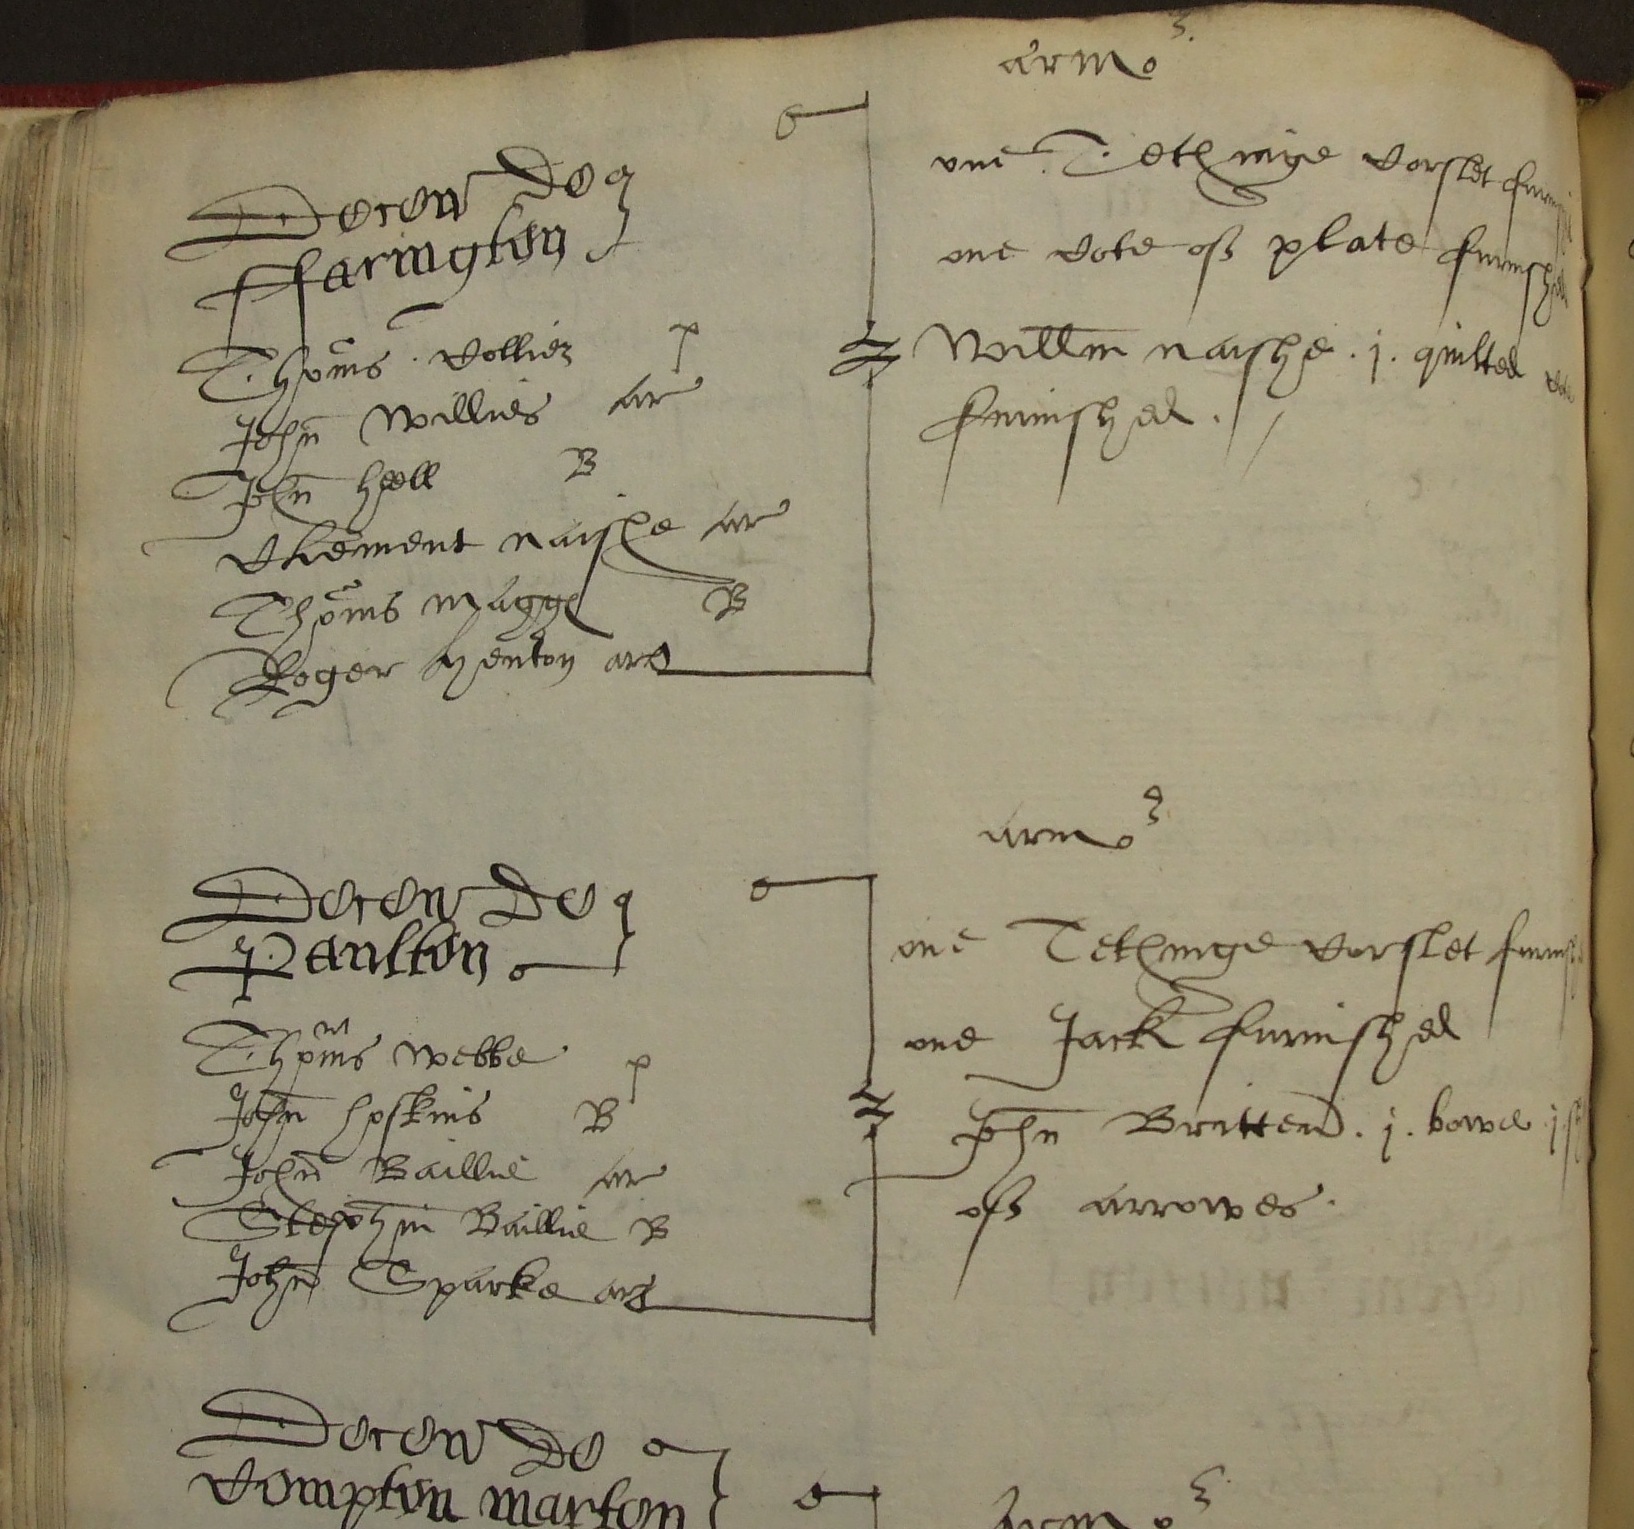 Decen de
ffarington
Thoms Collier p
John Willies ar
John hyll B
Clement naishe ar
Thoms magge B
Roger henton ar
armor
one Tethinge Corslet furnish
one Cote off plate furnished
Willm naishe . j . quilted Cote
furnished .
Decen de
Paulton
Thoms webbe p
John hoskins B
John Baillie ar
Stephin Baillie B
John Sparke ar
armor
one Tethinge Corslet furnish
one Jack furnished
John Britten . j . bowe j sh
off arrowes .
Decen de
Compton marton
armor